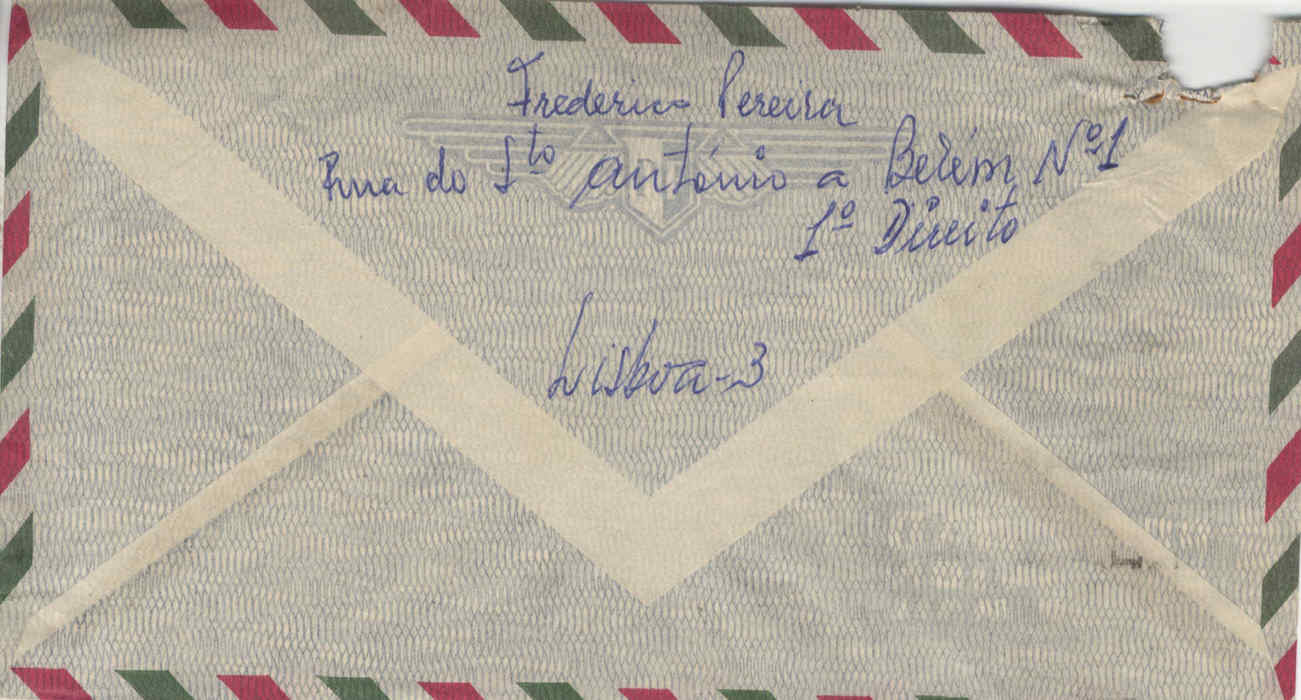 Frederico Pereira
Rua do Sto António a Belém Nº1
1º Direito
Lisboa-3